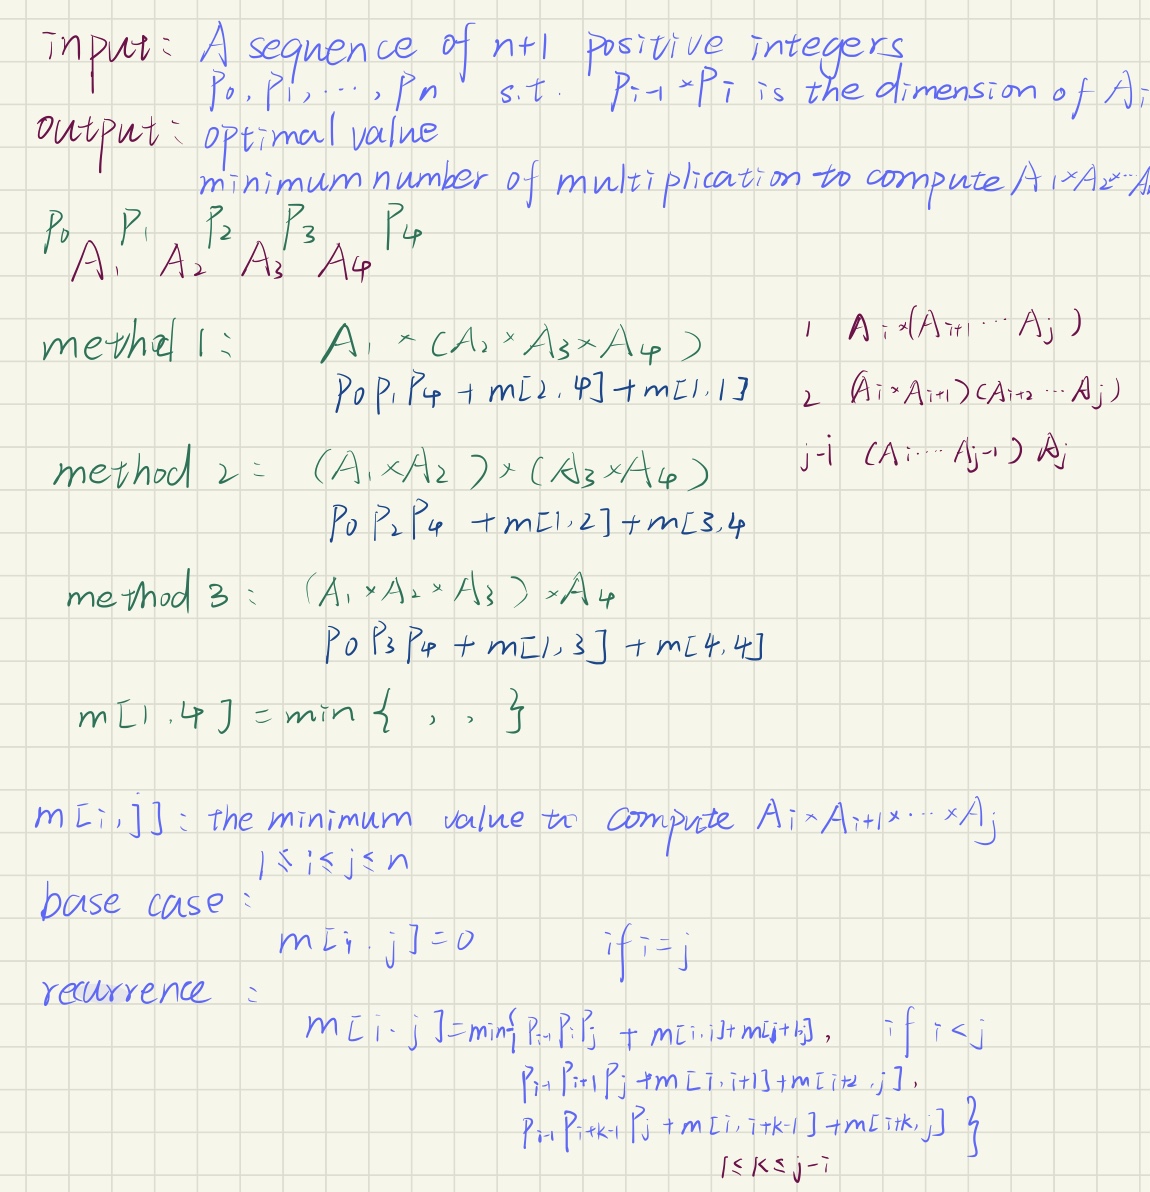 input: A sequence of n+1 positive integers
P0, P1, ..., Pn s.t. Pi-1 × Pi is the dimension of Ai
output: optimal value
minimum number of multiplication to compute A1×A2×...A
P0 P1 P2 P3 P4
A1 A2 A3 A4
method 1: A1 × (A2 × A3 × A4) 1 Ai×(Ai+1 ... Aj)
P0 P1 P4 + m[2,4] + m[1,1] 2 (Ai×Ai+1)(Ai+2 ... Aj)
j-i (Ai .... Aj-1) Aj
method 2: (A1 × A2) × (A3 × A4)
P0 P2 P4 + m[1,2] + m[3,4
method 3: (A1 × A2 × A3) × A4
P0 P3 P4 + m[1,3] + m[4,4]
m[1,4] = min { , , }
m[i,j]: the minimum value to compute Ai × Ai+1 × ... × Aj
1 ≤ i ≤ j ≤ n
base case:
m[i,j] = 0 if i = j
recurrence:
m[i,j] = min{ Pi-1 Pi Pj + m[i,i] + m[j+1,j], if i < j
Pi-1 Pi+1 Pj + m[i,i+1] + m[i+2,j],
Pi-1 Pi+k-1 Pj + m[i,i+k-1] + m[i+k,j] }
1 ≤ k ≤ j-i